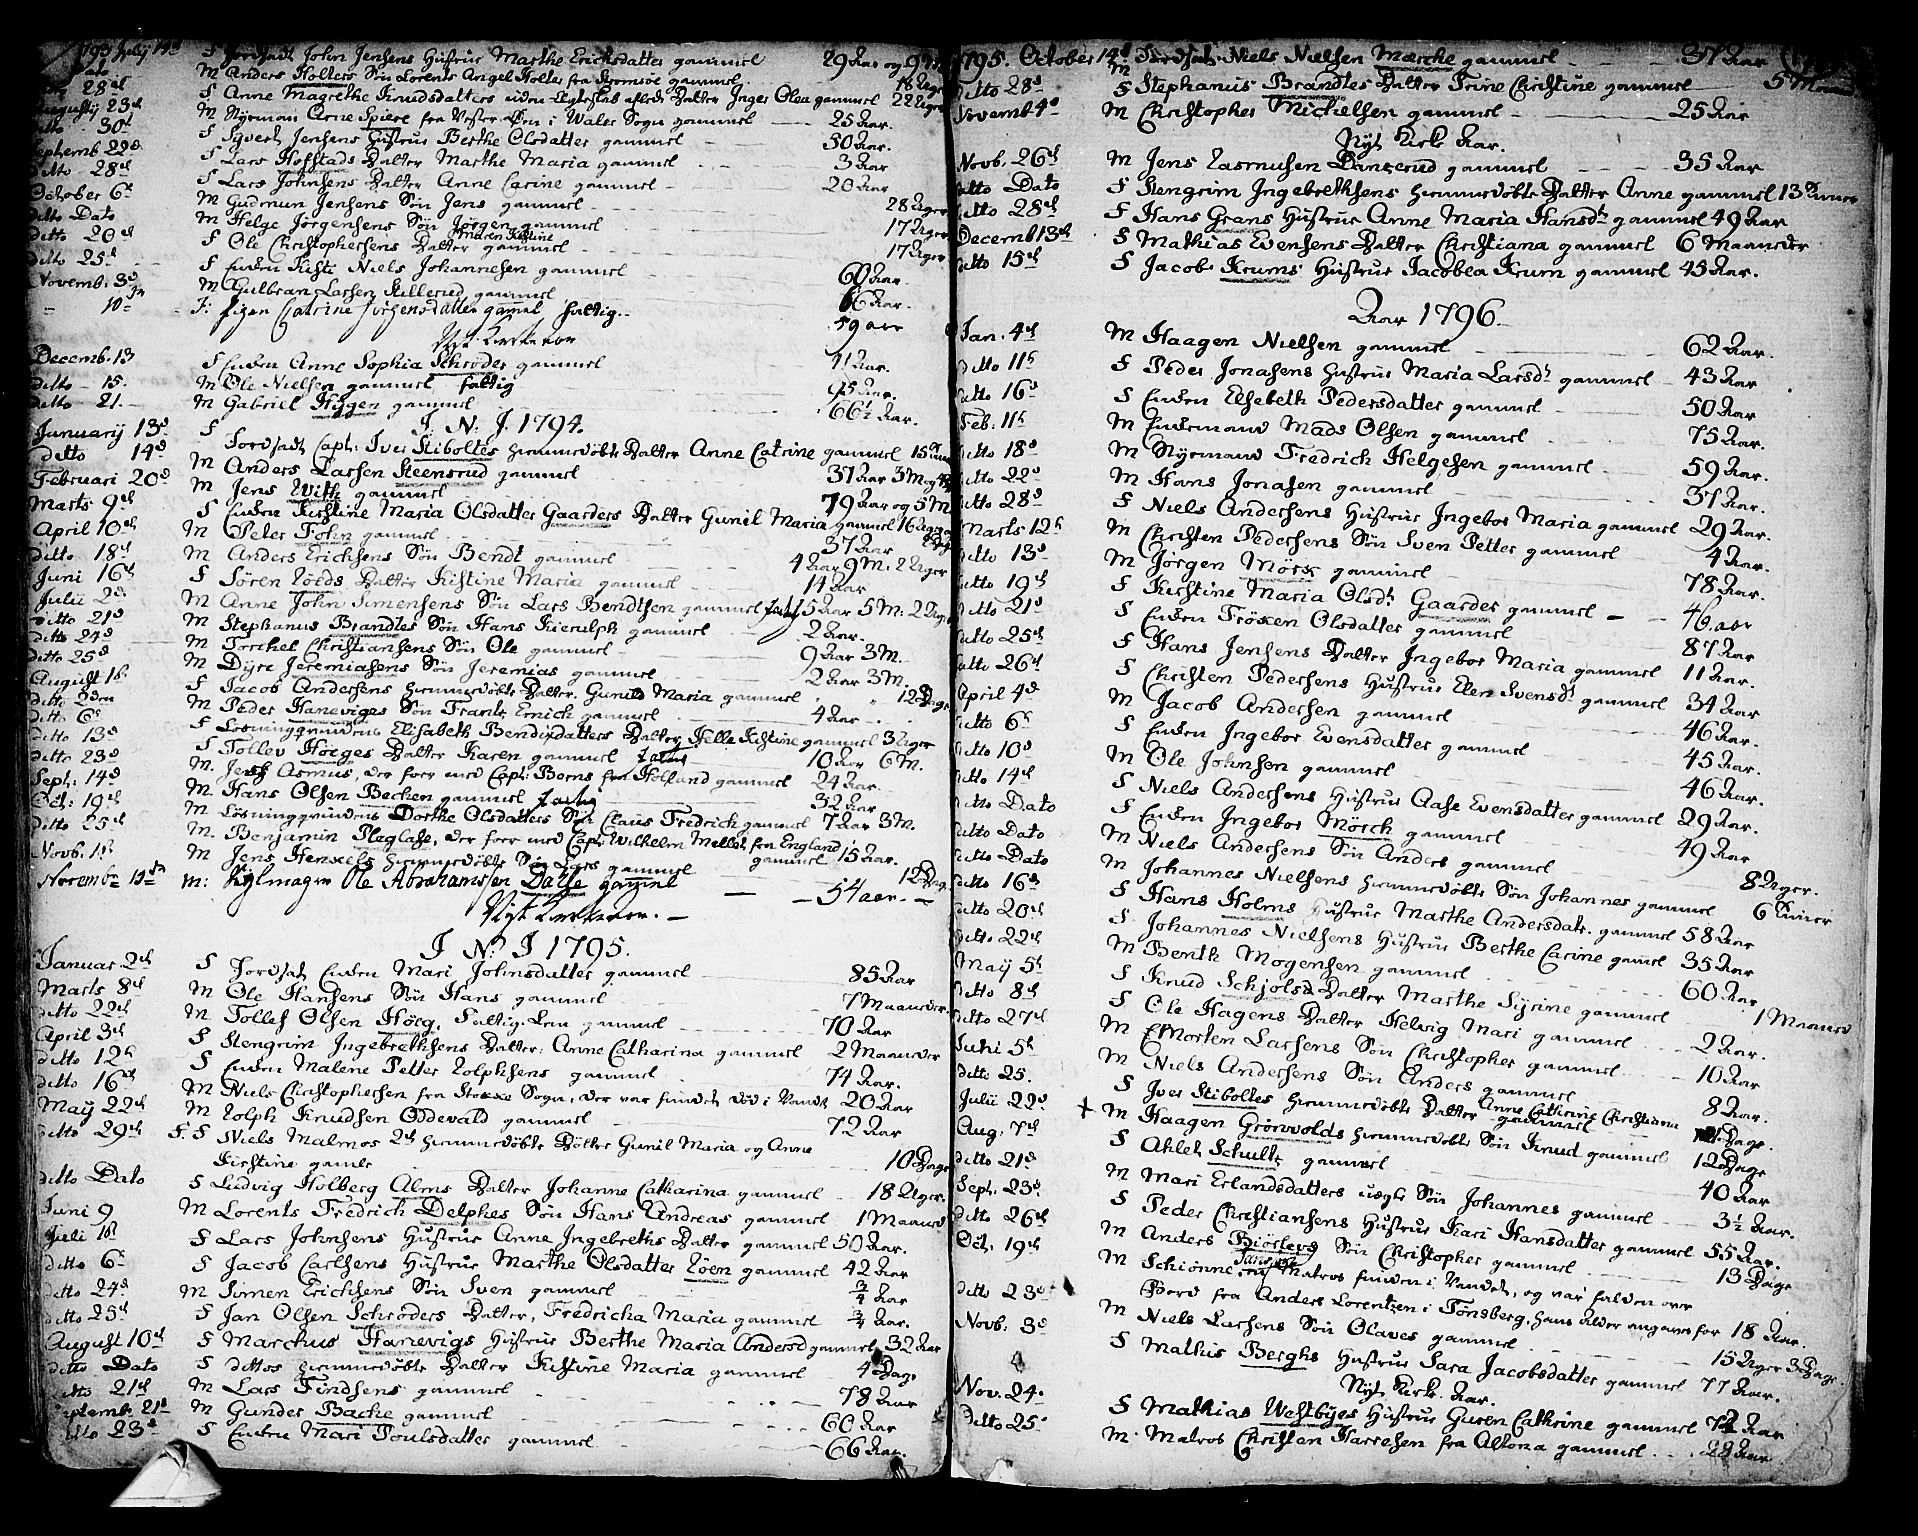 1793 July 14d F Jordsat John Jensens Hustrue Marthe Erichsdatter gammel 29 Aar og 9 M
dito Dato M Anders Holters Søn Lorents Angel Holter fra Stromsøe gammel 18 Uger
ditto 28d F Anne Magrethe Knudsdatters uden Egteskab aflede Datter Inger Olea gammel 22 Uger
Augustij 23d M Styrman Arne Spiere fra Vester Øen i Wales Sogn gammel 25 Aar.
ditto 30d F Syvert Jensens Hustrue Berthe Olsdatter gammel 50 Aar.
Septemb 22d F Lars Hofstads Datter Marthe Maria gammel 3 Aar
ditto 28d F Lars Johnsens Datter Anne Carine gammel 20 Aar
October 6t M Gudmun Jensens Søn Jens gammel 28 Uger
ditto Dato M Helge Jørgensens Søn Jørgen gammel 17 Uger
ditto 20d F Ole Christophersens Datter Maren Kistine gammel 17 Uger
ditto 25d F Enken Kisti Niels Johannesen gammel 60 Aar.
Novemb. 3d M Gulbran Larsen Killerud gammel 66 Aar.
10de F: Pigen Catrine Jørgensdatter gamel fattig 59 aar
Nyt Kirkeaar
Decemb. 13 F Enken Anne Sophia Schrøder gammel 71 Aar.
ditto 15. M Ole Nielsen gammel fattig 95 Aar.
ditto 21. M Gabriel Hygen gammel 66½ Aar.
I. N. J. 1794.
Januarij 13d F Jordsadt Capt: Iver Stiboltes hiemmedøbte Datter Anne Catrine gammel 15
ditto 14d M Anders Larsen Steensrud gammel 37 Aar 3 M og
Februari 20d M Jens With gammel 79 Aar og 5 M
Marts 9d F Enken Kirstine Maria Olsdatter Gaarders Datter Gunil Maria gammel 16 Uger
April 10d M Peter Fohn gammel 37 Aar
ditto 18d M Anders Erichsens Søn Bendt gammel 4 Aar 9 M: 2 Uger
Juni 16d F Søren Zoids Datter Kistine Maria gammel 14 Aar
Julii 2d M Anne John Simensens Søn Lars Bendtsen gammel 5 Aar 5 M: 2 Uger
ditto 21d M Stephanus Brandtes Søn Hans Kierulph gammel 2 Aar.
ditto 24d M Torchel Christiansens Søn Ole gammel 9 Aar 3 M.
ditto 25d M Dyre Jeremiasens Søn Jeremias gammel 2 Aar 3 M.
August 1t F Jacob Andersens hiemmedøbte Datter Gunild Maria gammel 12 Dage
ditto M Peder Haneviges Søn Frantz Ernich gammel 4 Aar
ditto 6t F Løsningqvindens Elisabeth Bendixdatters Datter Helle Kistine gammel 3 Uger
ditto 13d F Tollev Hørges Datter Karen gammel 10 Aar 6 M.
ditto 23d M. Asmus, der foer med Capt: Borns fra Holland gammel 24 Aar.
Sept: 14d M. Hans Olsen Bechen gammel 32 Aar
Oct: 19d M Løsningqvindens Dorthe Olsdatters Søn Claus Fredrich gammel 7 Aar 3 M.
ditto 25d M. Benjamin Plaglase, der foer med Capt: Wilhelm Mellet fra England gammel 15 Aar.
Novb. 1t M Jens Henxels hiemmedøbte Søn Lars gammel 12 Dag.
Novembr 19de m: Kylmager Ole Abrahamssen Dahle gammel 54 aar.
Nyt Kirkeaar.
I. N. J 1795.
Januar 2d F Jordsat Enken Mari Johnsdatter gammel 85 Aar
Marts 8d M Ole Hansens Søn Hans gammel 7 Maaneder
ditto 22d M Tollef Olsen Hørg, Fattig Lem gammel 70 Aar
April 3d F Stengrim Ingebrethsens Datter: Anne Catharina gammel 2 Maaneder
ditto 12d F Enken Malene Petter Rolphsens gammel 74 Aar.
ditto 16d M Niels Christophersen fra Stokke Sogn, der var funden død i Vandet 20 Aar
May 22d M Rolph Knudsen Oddevald gammel 72 Aar
ditto 29d F. F Niels Malmos 2de hiemmedøbte Døtter Gunil Maria og Anne
Kirstine gamle 10 Dage
ditto Dato F Ludvig Holberg Alms Datter Johanne Catharina gammel 18 Uger.
Juni 9 M Lorents Fredrich Delphes Søn Hans Andreas gammel 1 Maaned
Juli 1t F Lars Johnsens Hustrue Anne Ingebreths Datter gammel 50 Aar.
ditto 6t F Jacob Carlsens Hustrue Marthe Olsdatter Zoen gammel 42 Aar
ditto 24d M Simen Erichsens Søn Sven gammel ¾ Aar
ditto 25d F Jan Olsen Schrøders Datter, Fredricha Maria gammel ¾ Aar.
August 10d F Marchus Hanevigs Hustrue Berthe Maria Andersd gammel 32 Aar
ditto Dato F dittos hiemmedøbte Datter Kistine Maria gammel 4 Dage
ditto 21d M Lars Findsens gammel 78 Aar
Septemb. 21d M Gunder Backe gammel 60 Aar
ditto 23d F Enken Mari Poulsdatter gammel 66 Aar.
1795. October 14d M Jordsat Niels Nielsen Marche gammel 37 Aar
ditto 28d F Stephanus Brandtes Datter Trine Christine gammel 5 Maaned
Novemb 4d M Christopher Michelsen gammel 25 Aar
Nyt Kirk Aar.
Novb. 26d M Jens Rasmusen Danserud gammel 35 Aar
ditto Dato F Stengrim Ingebrethsens hiemmedøbte Datter Anne gammel 13
ditto 28d F Hans Grans Hustrue Anne Maria Hansdr gammel 49 Aar
Decemb 13d F Mathias Evensens Datter Christiana gammel 6 Maaneder
ditto 15d F Jacob Krums Hustrue Jacobea Krum gammel 45 Aar.
Aar 1796.
Jan. 4d M Haagen Nielsen gammel 62 Aar.
ditto 11t F Peder Jonasens Hustrue Maria Larsdr gammel 43 Aar
ditto 16d F Enken Elsebeth Pedersdatter gammel 50 Aar
Feb. 11t M Enkemand Mads Olsen gammel 75 Aar.
ditto 18d M Styrmand Fredrich Helgesen gammel 59 Aar.
ditto 22d M Hans Jonasen gammel 37 Aar.
ditto 28d F Niels Andersens Hustrue Ingebor Maria gammel 29 Aar.
Marts 12t M Christen Pedersens Søn Sven Petter gammel 4 Aar.
ditto 13d M Jørgen Mørk gammel 78 Aar.
ditto 19d F Kirstine Maria Olsdr Gaarder gammel 46 aar
ditto 21d F Enken Frøken Olsdatter gammel 87 Aar
ditto 25d F Hans Jensens Datter Ingebor Maria gammel 11 Aar.
ditto 26d F Christen Pedersens Hustrue Elen Svensdr gammel 34 Aar
April 4d M Jacob Andersen gammel 46 Aar.
ditto 6t F Enken Ingebor Evensdatter gammel 45 Aar.
ditto 10d M Ole Johnsen gammel 46 Aar.
ditto 14d F Niels Andersens Hustrue Aase Evensdatter gammel 29 Aar.
ditto Dato F Enken Ingebor Mørch gammel 49 Aar
ditto Dato M Niels Andersens Søn Anders gammel 8 Uger.
ditto Dato M Johannes Nielsens hiemmedøbte Søn Johannes gammel 6 Timer
ditto 16d F Hans Holms Hustrue Marthe Andersdatr. gammel 58 Aar
ditto 20d F. Johannes Nielsens Hustrue Berthe Carine gamel 35 Aar
ditto 22d M Benth Mogensen gammel 60 Aar
May 5t F Knud Schjolsd Datter Marthe Sirine gammel 1 Maaned
ditto 8d F Ole Hagens Datter Helvig Mari gammel 2 Aar.
ditto 27d M Morten Larsens Søn Christopher gammel 10 Aar
Juni 5t M Niels Andersens Søn Anders gammel 8 Aar.
ditto 25. F Iver Stiboltes hiemmedøbte Datter Anne Cathrine Christiana gammel Dage
Julii 22d + M Haagen Grønvolds hiemmedøbte Søn Knud gammel 12 Dage
Aug. 7d F Ahlet Schulte gammel 40 Aar
ditto 21d M Mari Erlandsdatters uægte Søn Johannes gammel 3½ Aar.
Sept. 23d F Peder Christiansens Hustrue Kari Hansdatter gammel 55 Aar.
ditto 26d M Anders Biørlevs Søn Christopher gammel 13 Dage
Oct. 19d M Schiønne Matros funden i Vandet, og var falden over
ditto 23d Bord fra Anders Lorentzen i Tønsberg, hans alder angaves for 18 Aar.
Novb: 3d M Niels Larsens Søn Olaves gammel 15 Uger 3 Dage
4 F Mathis Berghs Hustrue Sara Jacobsdatter gammel 77 Aar.
Nyt Kirk. Aar.
Nov. 24. F Mathias Westbyes Hustrue Guren Cathrine gammel 72 Aar
ditto 25. M. Matros Christen Harresen fra Altona gammel 28 Aar